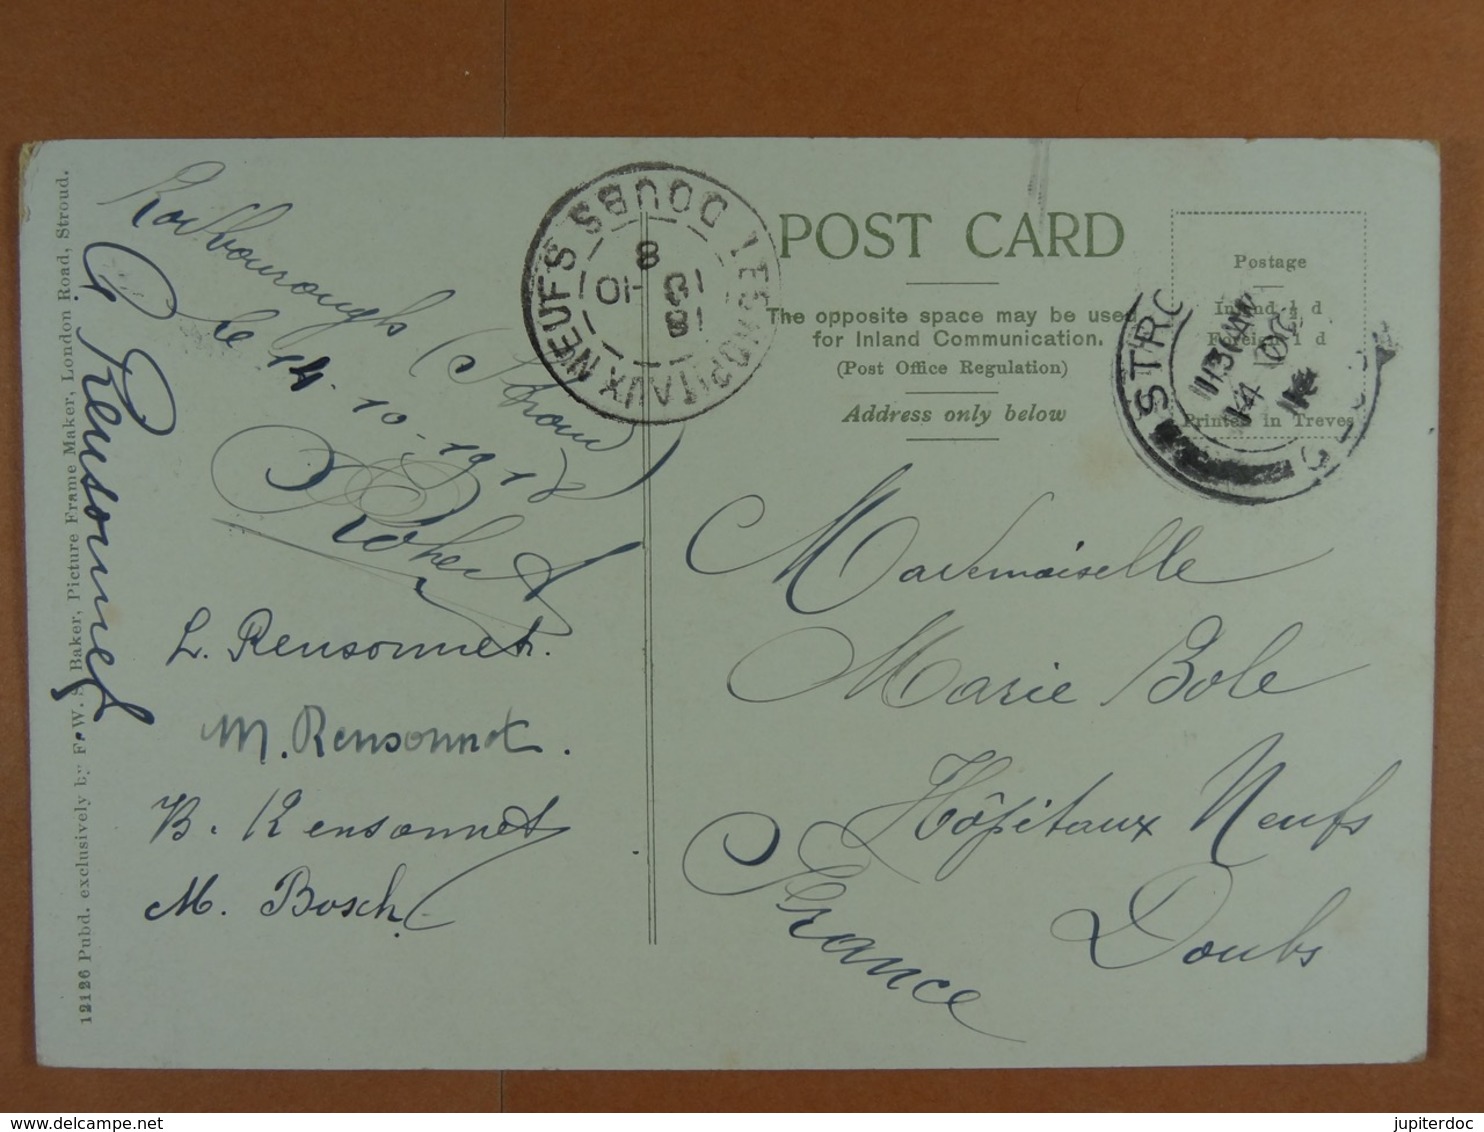 12126 Pubd. exclusively by F. W. S. Baker, Picture Frame Maker, London Road, Stroud.
Rodborough (Stroud)
le 14-10-191
Robert
G. Rensonnet
L. Rensonnet.
M. Rensonnet.
B. Rensonnet
M. Bosch.
LES HOPITAUX NEUFS DOUBS
8
POST CARD
The opposite space may be used
for Inland Communication.
(Post Office Regulation)
Address only below
Postage
Inland ½ d
Foreign 1 d
Printed in Treves
STRO
1130AM
14 OC
Mademoiselle
Marie Bole
Hôpitaux Neufs
Doubs
France
jupiterdoc